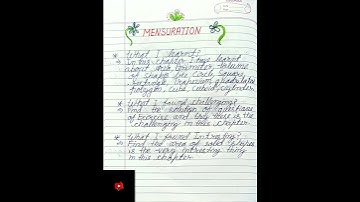 MENSURATION
* What I learnt?
→ In this chapter I have learnt
about Area, Perimeter, Volume
of shapes like Circle, Square
Rectangle, Trapezium, Quadrilateral
Polygon, Cube, Cuboid, Cylinder.
* What I found challenging?
→ Find the solution of questions
of Exercise and Only there is the
challenging in this chapter.
* What I found Interesting?
→ Find the area of solid shapes
is the very intresting thing
in this chapter.